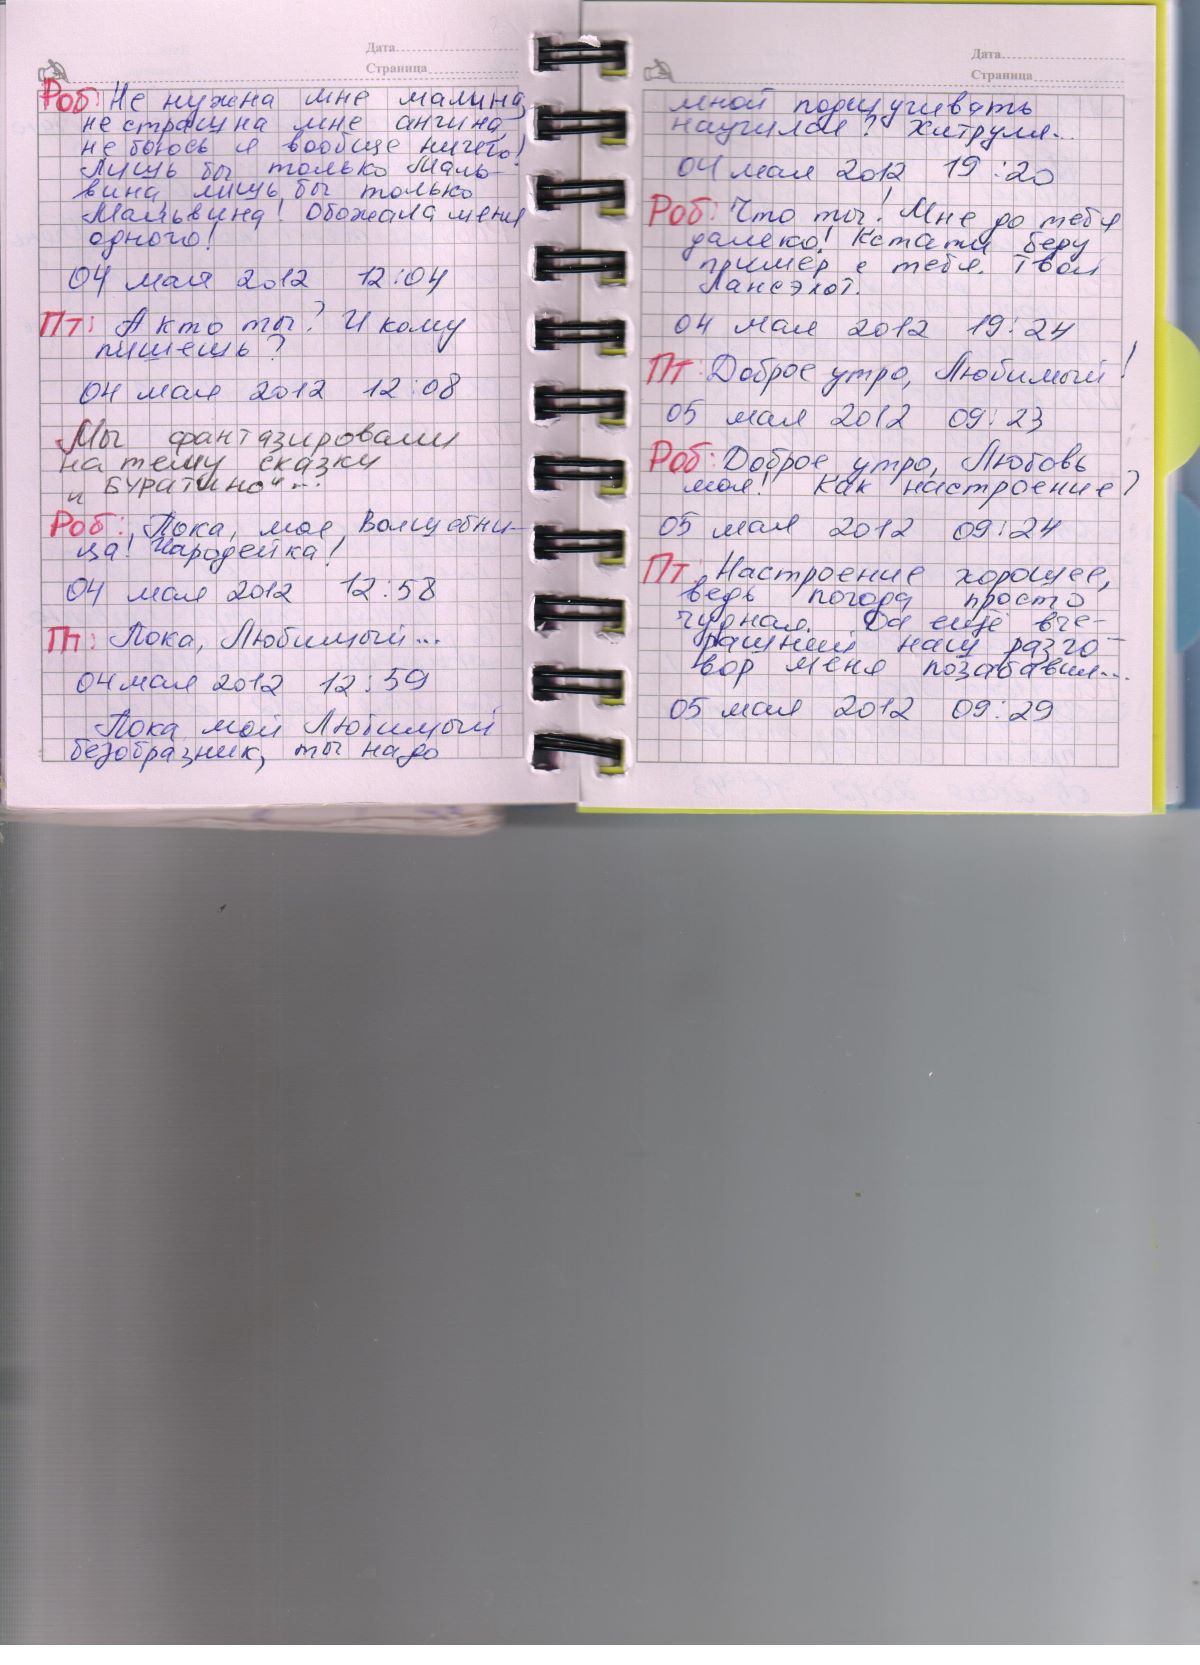 Дата
Страница
Роб: Не нужна мне малина,
не страшна мне ангина,
не боюсь я вообще ничего!
Лишь бы только Маль-
вина, лишь бы только
Мальвина! Обожала меня
одного!
04 мая 2012 12:04
Пт: А кто ты? И кому
пишешь?
04 мая 2012 12:08
Мы фантазировали
на тему сказку
"Буратино"...
Роб: Пока, моя Волшебни-
ца! Чародейка!
04 мая 2012 12:58
Пт: Пока, Любимый...
04 мая 2012 12:59
Пока мой Любимый
безобразник, ты надо
Дата
Страница
мной подшучивать
научился? Хитруля...
04 мая 2012 19:20
Роб: Что ты! Мне до тебя
далеко! Кстати беру
пример с тебя. Твой
Лансэлот.
04 мая 2012 19:24
Пт: Доброе утро, Любимый!
05 мая 2012 09:23
Роб: Доброе утро, Любовь
моя! Как настроение?
05 мая 2012 09:24
Пт: Настроение хорошее,
ведь погода просто
чудная. Да ещё вче-
рашний наш разго-
вор меня позабавил...
05 мая 2012 09:29